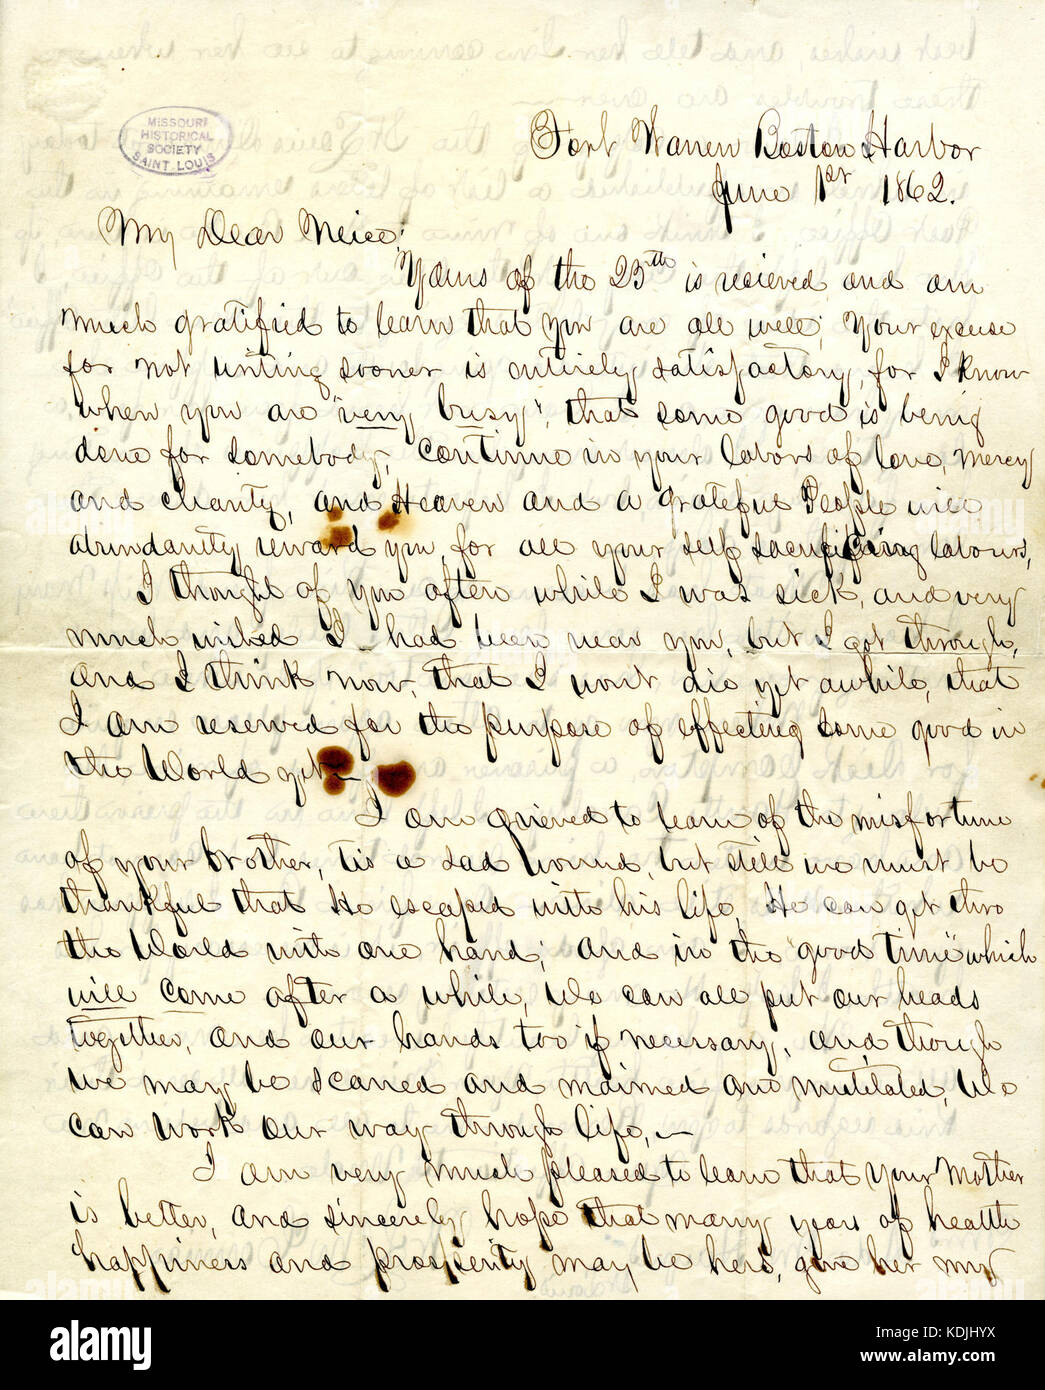 MISSOURI
HISTORICAL
SOCIETY
SAINT LOUIS
Fort Warren Boston Harbor
June 1st 1862.
My Dear Neice;
Yours of the 25th is recieved and am
much gratified to learn that you are all well; Your excuse
for not writing sooner is entirely satisfactory, for I know
when you are "very busy", that some good is being
done for somebody, Continue in your labors of love, mercy
and charity, and Heaven and a grateful People will
abundantly reward you for all your self sacrificing labours,
I thought of you often while I was sick, and very
much wished I had been near you, but I got through,
and I think now, that I wont die yet awhile, that
I am reserved for the purpose of effecting some good in
the World yet—
I am grieved to learn of the misfortune
of your brother, tis a sad wound, but still we must be
thankful that He escaped with his life, He can get thro
the World with one hand; and in the "good time" which
will come after a while, We can all put our heads
together, and our hands too if necessary, and though
we may be scarred and maimed and mutilated, We
can work our way through life,—
I am very much pleased to learn that your Mother
is better, and sincerely hope that many years of health
happiness and prosperity may be hers, give her my
alamy
Image ID: KDJHYX
www.alamy.com